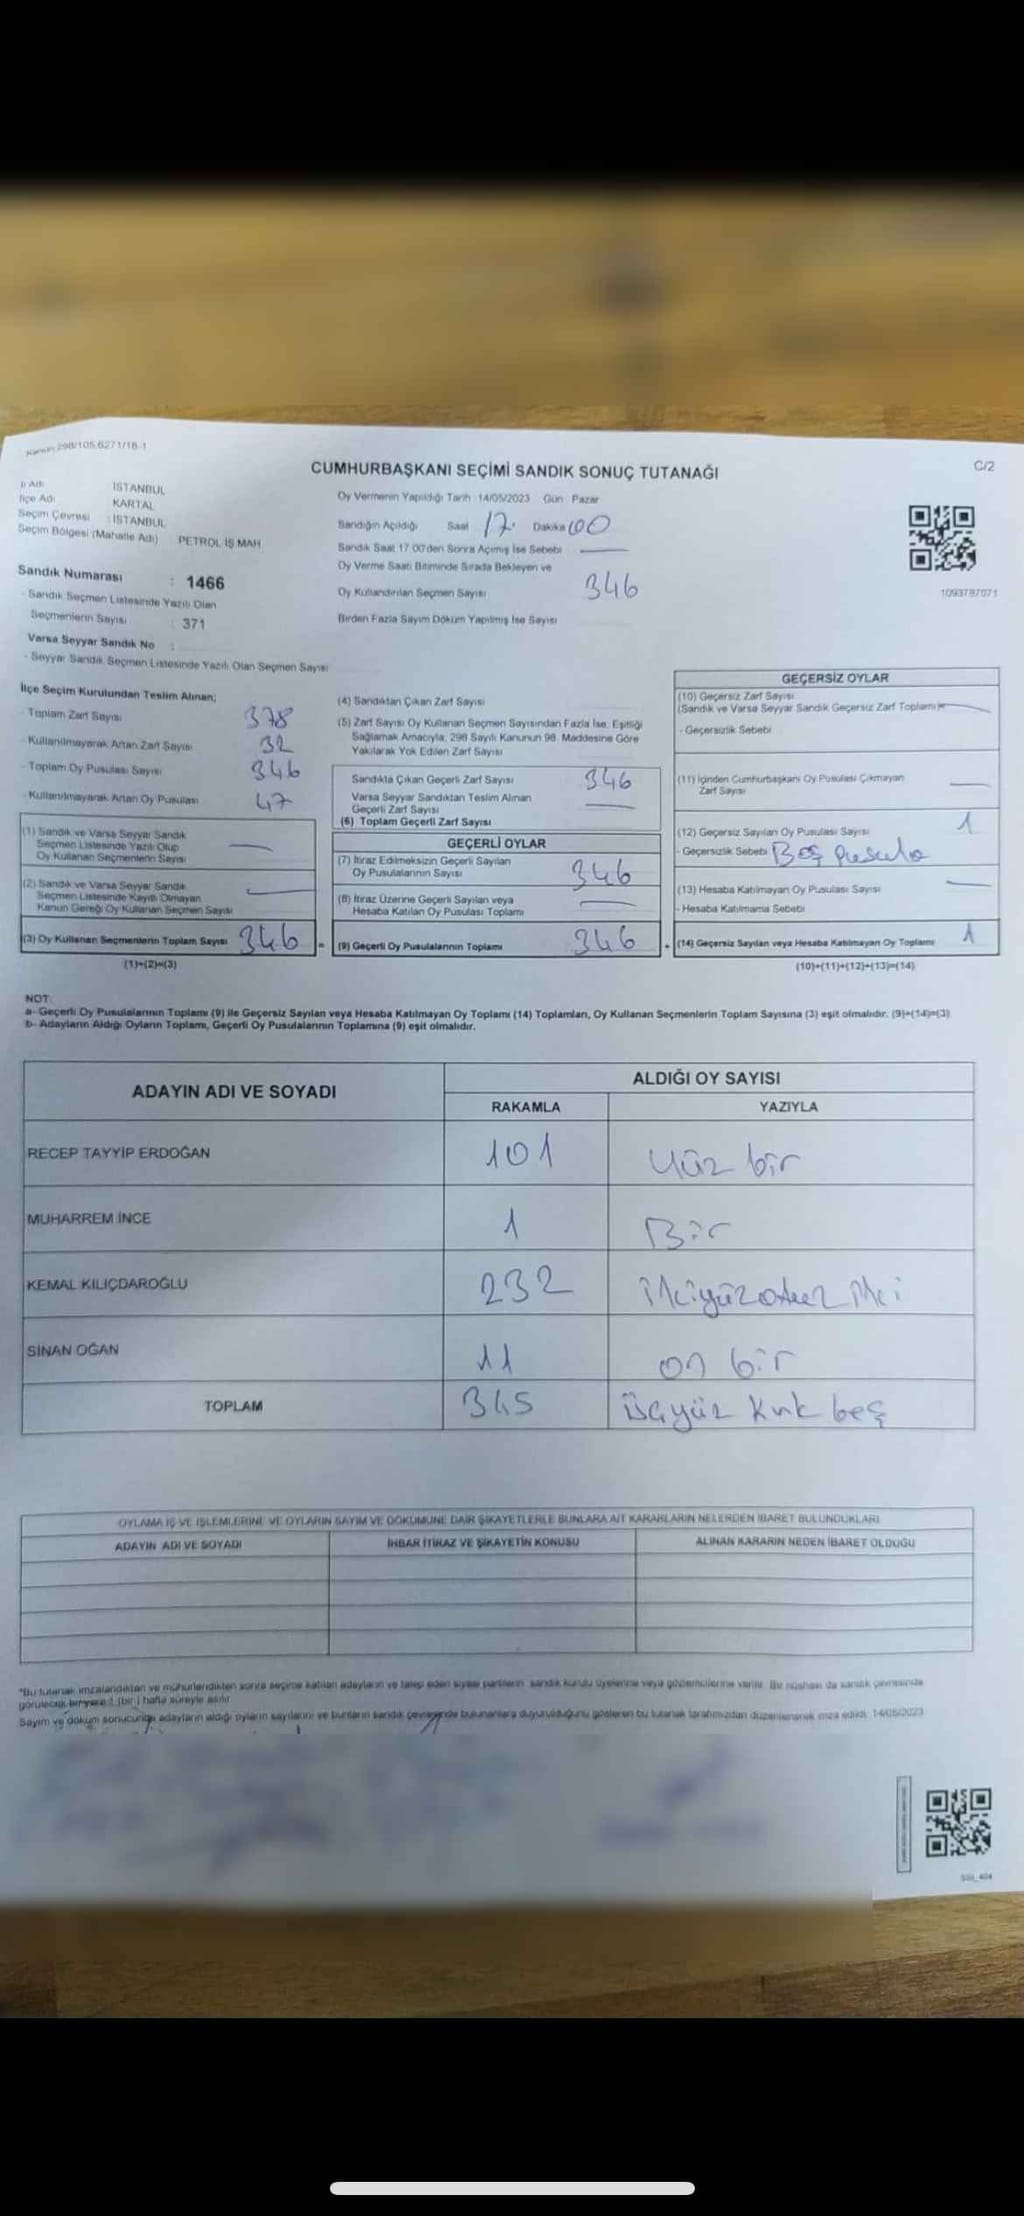 Kanun 298/105,6271/18-1
CUMHURBAŞKANI SEÇİMİ SANDIK SONUÇ TUTANAĞI
C/2
İl Adı İSTANBUL
İlçe Adı KARTAL
Seçim Çevresi : İSTANBUL
Seçim Bölgesi (Mahalle Adı) PETROL İŞ MAH.
Oy Vermenin Yapıldığı Tarih 14/05/2023 Gün Pazar
Sandığın Açıldığı Saat 17 Dakika 00
Sandık Saat 17 00'den Sonra Açılmış İse Sebebi
Oy Verme Saati Bitiminde Sırada Bekleyen ve
Oy Kullandırılan Seçmen Sayısı 346
Birden Fazla Sayım Döküm Yapılmış İse Sayısı
1093787071
Sandık Numarası : 1466
- Sandık Seçmen Listesinde Yazılı Olan
Seçmenlerin Sayısı : 371
Varsa Seyyar Sandık No :
- Seyyar Sandık Seçmen Listesinde Yazılı Olan Seçmen Sayısı
İlçe Seçim Kurulundan Teslim Alınan;
- Toplam Zarf Sayısı 378
- Kullanılmayarak Artan Zarf Sayısı 32
- Toplam Oy Pusulası Sayısı 346
- Kullanılmayarak Artan Oy Pusulası 47
(1) Sandık ve Varsa Seyyar Sandık
Seçmen Listesinde Yazılı Olup
Oy Kullanan Seçmenlerin Sayısı
(2) Sandık ve Varsa Seyyar Sandık
Seçmen Listesinde Kayıtlı Olmayan
Kanun Gereği Oy Kullanan Seçmen Sayısı
(3) Oy Kullanan Seçmenlerin Toplam Sayısı 346 =
(1)+(2)=(3)
(4) Sandıktan Çıkan Zarf Sayısı
(5) Zarf Sayısı Oy Kullanan Seçmen Sayısından Fazla İse, Eşitliği
Sağlamak Amacıyla, 298 Sayılı Kanunun 98. Maddesine Göre
Yakılarak Yok Edilen Zarf Sayısı
Sandıkta Çıkan Geçerli Zarf Sayısı 346
Varsa Seyyar Sandıktan Teslim Alınan
Geçerli Zarf Sayısı
(6) Toplam Geçerli Zarf Sayısı
GEÇERLİ OYLAR
(7) İtiraz Edilmeksizin Geçerli Sayılan
Oy Pusulalarının Sayısı 346
(8) İtiraz Üzerine Geçerli Sayılan veya
Hesaba Katılan Oy Pusulası Toplamı
(9) Geçerli Oy Pusulalarının Toplamı 346 +
GEÇERSİZ OYLAR
(10) Geçersiz Zarf Sayısı
(Sandık ve Varsa Seyyar Sandık Geçersiz Zarf Toplamı)
- Geçersizlik Sebebi
(11) İçinden Cumhurbaşkanı Oy Pusulası Çıkmayan
Zarf Sayısı
(12) Geçersiz Sayılan Oy Pusulası Sayısı 1
- Geçersizlik Sebebi Boş pusula
(13) Hesaba Katılmayan Oy Pusulası Sayısı
- Hesaba Katılmama Sebebi
(14) Geçersiz Sayılan veya Hesaba Katılmayan Oy Toplamı 1
(10)+(11)+(12)+(13)=(14)
NOT:
a- Geçerli Oy Pusulalarının Toplamı (9) ile Geçersiz Sayılan veya Hesaba Katılmayan Oy Toplamı (14) Toplamları, Oy Kullanan Seçmenlerin Toplam Sayısına (3) eşit olmalıdır. (9)+(14)=(3)
b- Adayların Aldığı Oyların Toplamı, Geçerli Oy Pusulalarının Toplamına (9) eşit olmalıdır.
ADAYIN ADI VE SOYADI
ALDIĞI OY SAYISI
RAKAMLA YAZIYLA
RECEP TAYYİP ERDOĞAN 101 Yüz bir
MUHARREM İNCE 1 Bir
KEMAL KILIÇDAROĞLU 232 ikiyüzotuz iki
SİNAN OĞAN 11 on bir
TOPLAM 345 üçyüz kırk beş
OYLAMA İŞ VE İŞLEMLERİNE VE OYLARIN SAYIM VE DÖKÜMÜNE DAİR ŞİKAYETLERLE BUNLARA AİT KARARLARIN NELERDEN İBARET BULUNDUKLARI
ADAYIN ADI VE SOYADI İHBAR İTİRAZ VE ŞİKAYETİN KONUSU ALINAN KARARIN NEDEN İBARET OLDUĞU
*Bu tutanak imzalandıktan ve mühürlendikten sonra seçime katılan adayların ve talep eden siyasi partilerin sandık kurulu üyelerine veya gözlemcilerine verilir. Bir nüshası da sandık çevresinde
görülecek bir yere 1 (bir) hafta süreyle asılır.
Sayım ve döküm sonucunda adayların aldığı oyların sayılarını ve bunların sandık çevresinde bulunanlara duyurulduğunu gösteren bu tutanak tarafımızdan düzenlenerek imza edildi. 14/05/2023